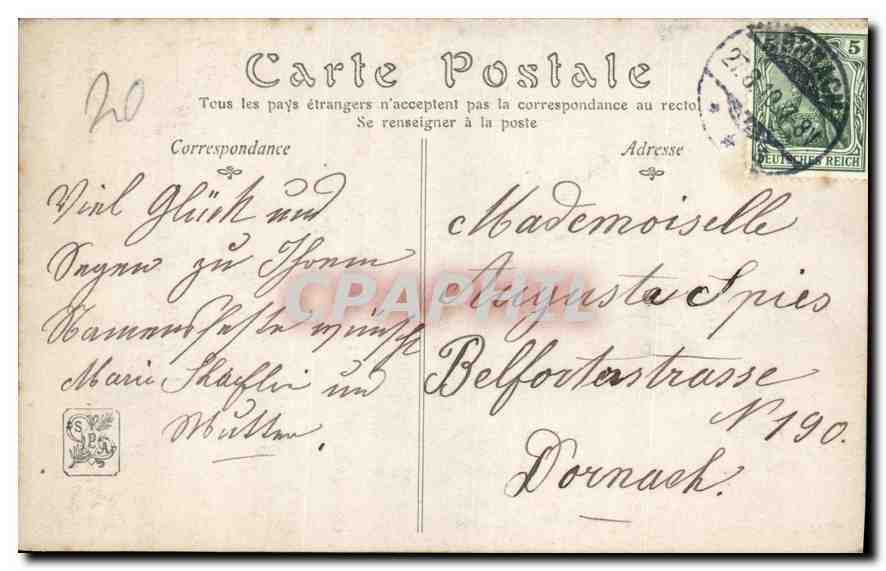 20
5
DEUTSCHES REICH
Carte Postale
Tous les pays étrangers n'acceptent pas la correspondance au recto
Se renseigner à la poste
Correspondance
Adresse
Viel Glück und
Segen zu Ihrem
Namensfeste wünscht
Marie und
Mutter.
Mademoiselle
Augusta Spies
Belforterstrasse
N 190.
Dornach.
CPAPHIL